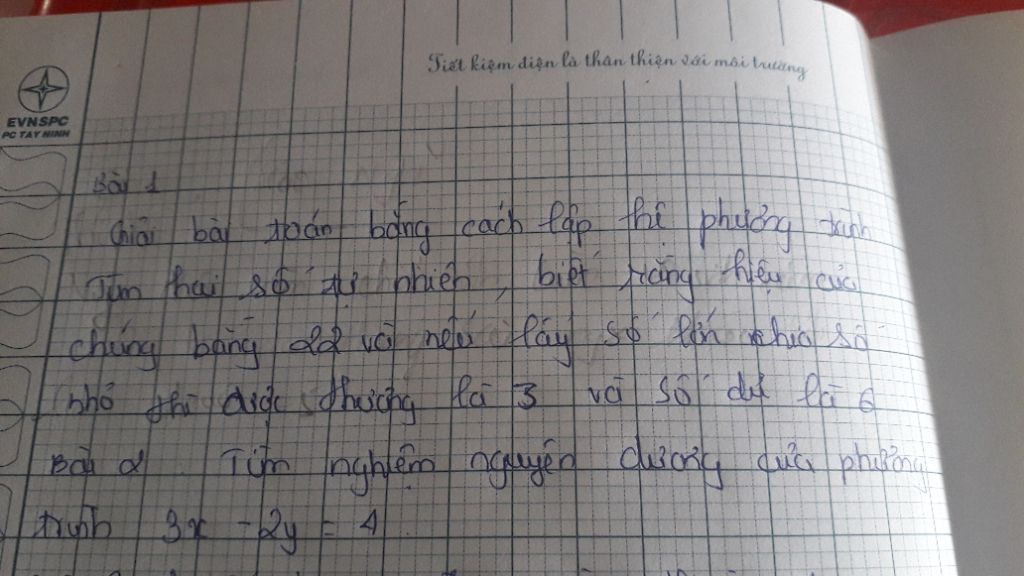 Tiết kiệm điện là thân thiện với môi trường
EVNSPC
PC TAY NINH
Bài 1
Giải bài toán bằng cách lập hệ phương trình
Tìm hai số tự nhiên, biết rằng hiệu của
chúng bằng 22 và nếu lấy số lớn chia số
nhỏ thì được thương là 3 và số dư là 6
Bài 2 Tìm nghiệm nguyên dương của phương
trình 3x - 2y = 4